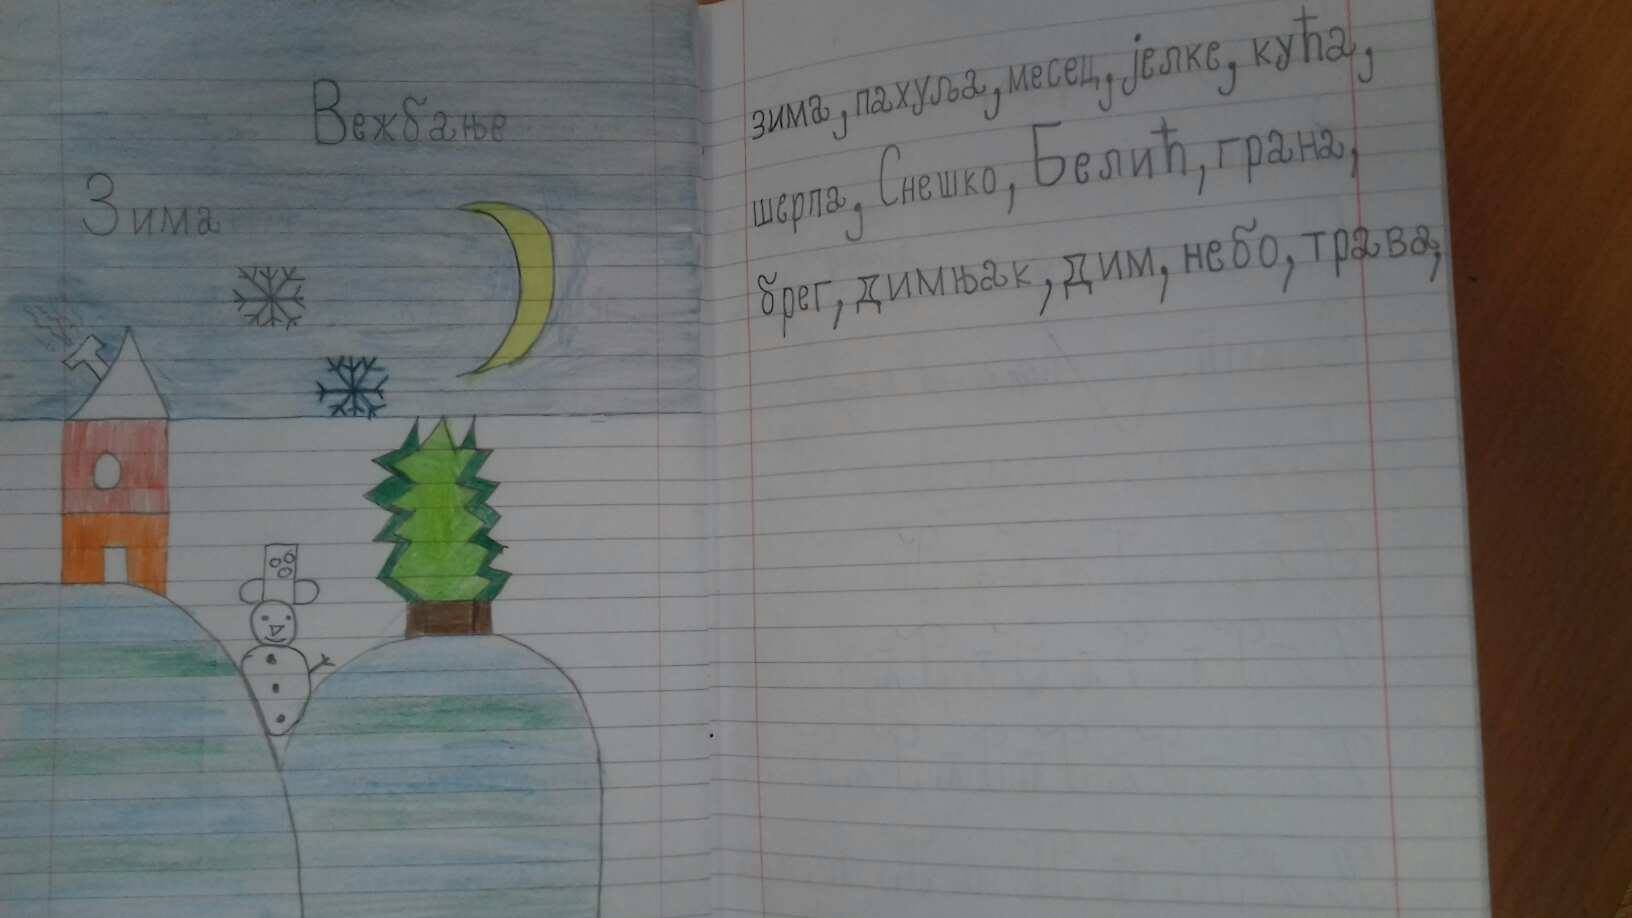 Вежбање
Зима
зима, пахуља, месец, јелке, кућа,
шерпа, Снешко, Белић, грана,
брег, димњак, дим, небо, трава,